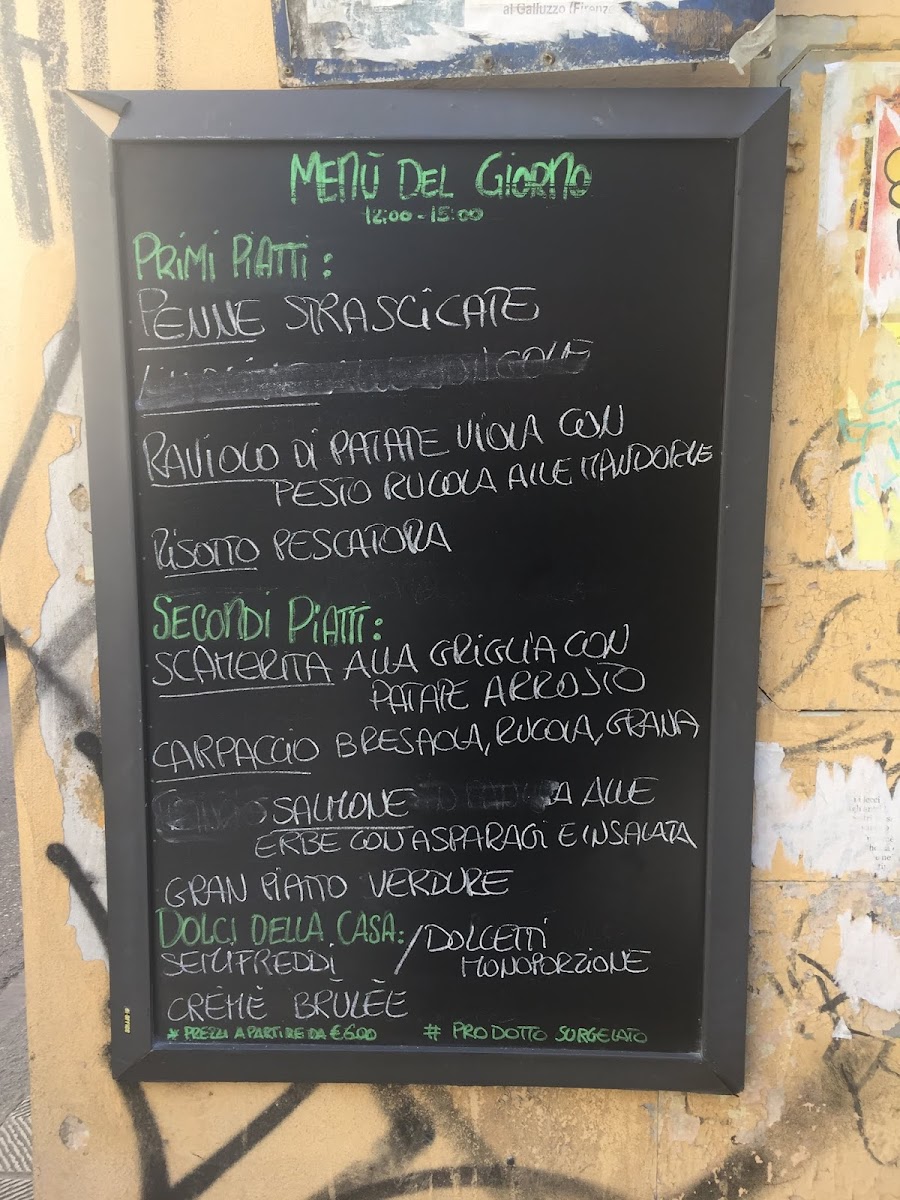 al Galluzzo (Firenz
MENÙ DEL GIORNO
12:00 - 15:00
PRIMI PIATTI:
PENNE STRASCICATE
RAVIOLO DI PATATE VIOLA CON
PESTO RUCOLA ALLE MANDORLE
RISOTTO PESCATORA
SECONDI PIATTI:
SCAMERITA ALLA GRIGLIA CON
PATATE ARROSTO
CARPACCIO BRESAOLA, RUCOLA, GRANA
SALMONE A ALLE
ERBE CON ASPARAGI E INSALATA
GRAN PIATTO VERDURE
DOLCI DELLA CASA:
SEMIFREDDI / DOLCETTI
MONOPORZIONE
CRÈMÈ BRÙLÈE
* PREZZI A PARTIRE DA €6.00 # PRODOTTO SURGELATO